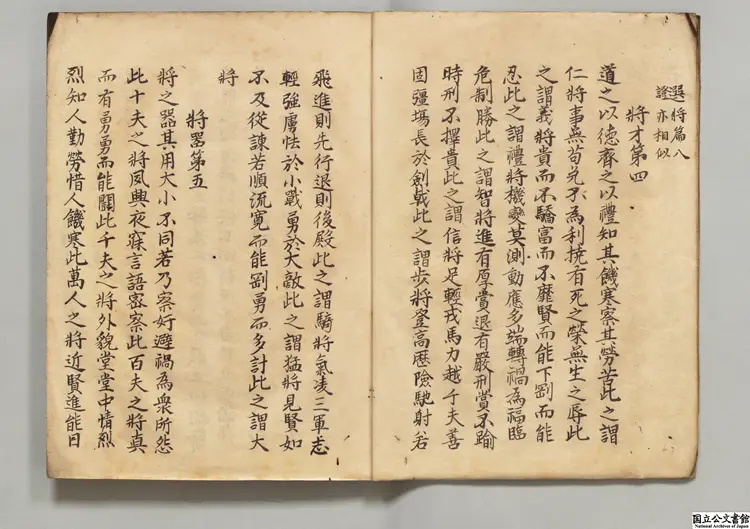 選將篇八
證亦相似
將才第四
道之以德齊之以禮知其饑寒察其勞苦此之謂
仁將事無苟免不為利撓有死之榮無生之辱此
之謂義將貴而不驕富而不靡賢而能下剛而能
忍此之謂禮將機變莫測動應多端轉禍為福臨
危制勝此之謂智將進有厚賞退有嚴刑賞不踰
時刑不擇貴此之謂信將足輕戎馬力越千夫善
固疆場長於劍戟此之謂步將登高歷險馳射若
飛進則先行退則後殿此之謂騎將氣凌三軍志
輕強虜怯於小戰勇於大敵此之謂猛將見賢如
不及從諫若順流寬而能剛勇而多計此之謂大
將
將器第五
將之器其用大小不同若乃察奸避禍為衆所怨
此十夫之將夙興夜寐言語密察此百夫之將真
而有勇勇而能鬪此千夫之將外貌堂堂中情烈
烈知人勤勞惜人饑寒此萬人之將近賢進能日
国立公文書館
National Archives of Japan